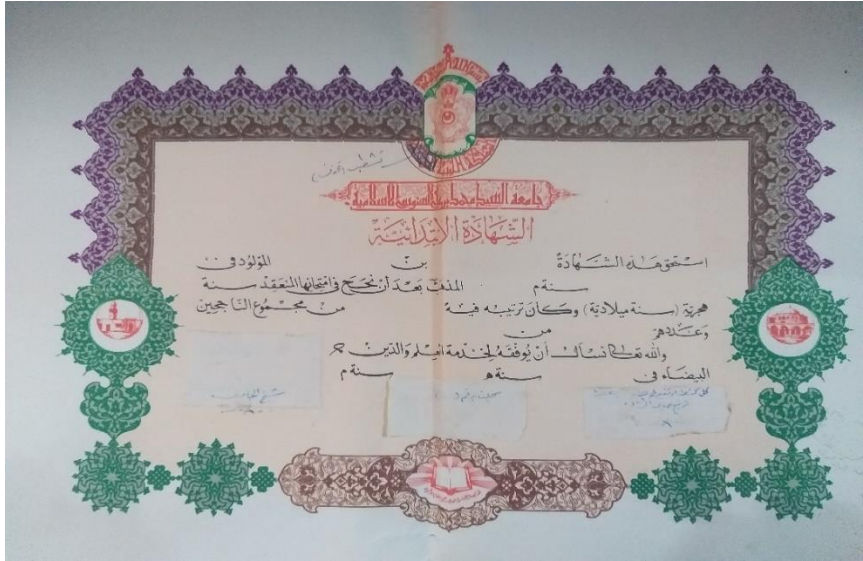 جامعة السيد محمد بن علي السنوسي الاسلامية
الشهادة الابتدائية
استحق هذه الشهادة بن المولود في
سنة م المذهب بعد أن نجح في امتحانها المنعقد سنة
هجرية (سنة ميلادية) وكان ترتيبه فيه من مجموع الناجحين
وعددهم من
والله تعالى نسأل أن يوفقه لخدمة العلم والدين
البيضاء في سنة ه سنة م